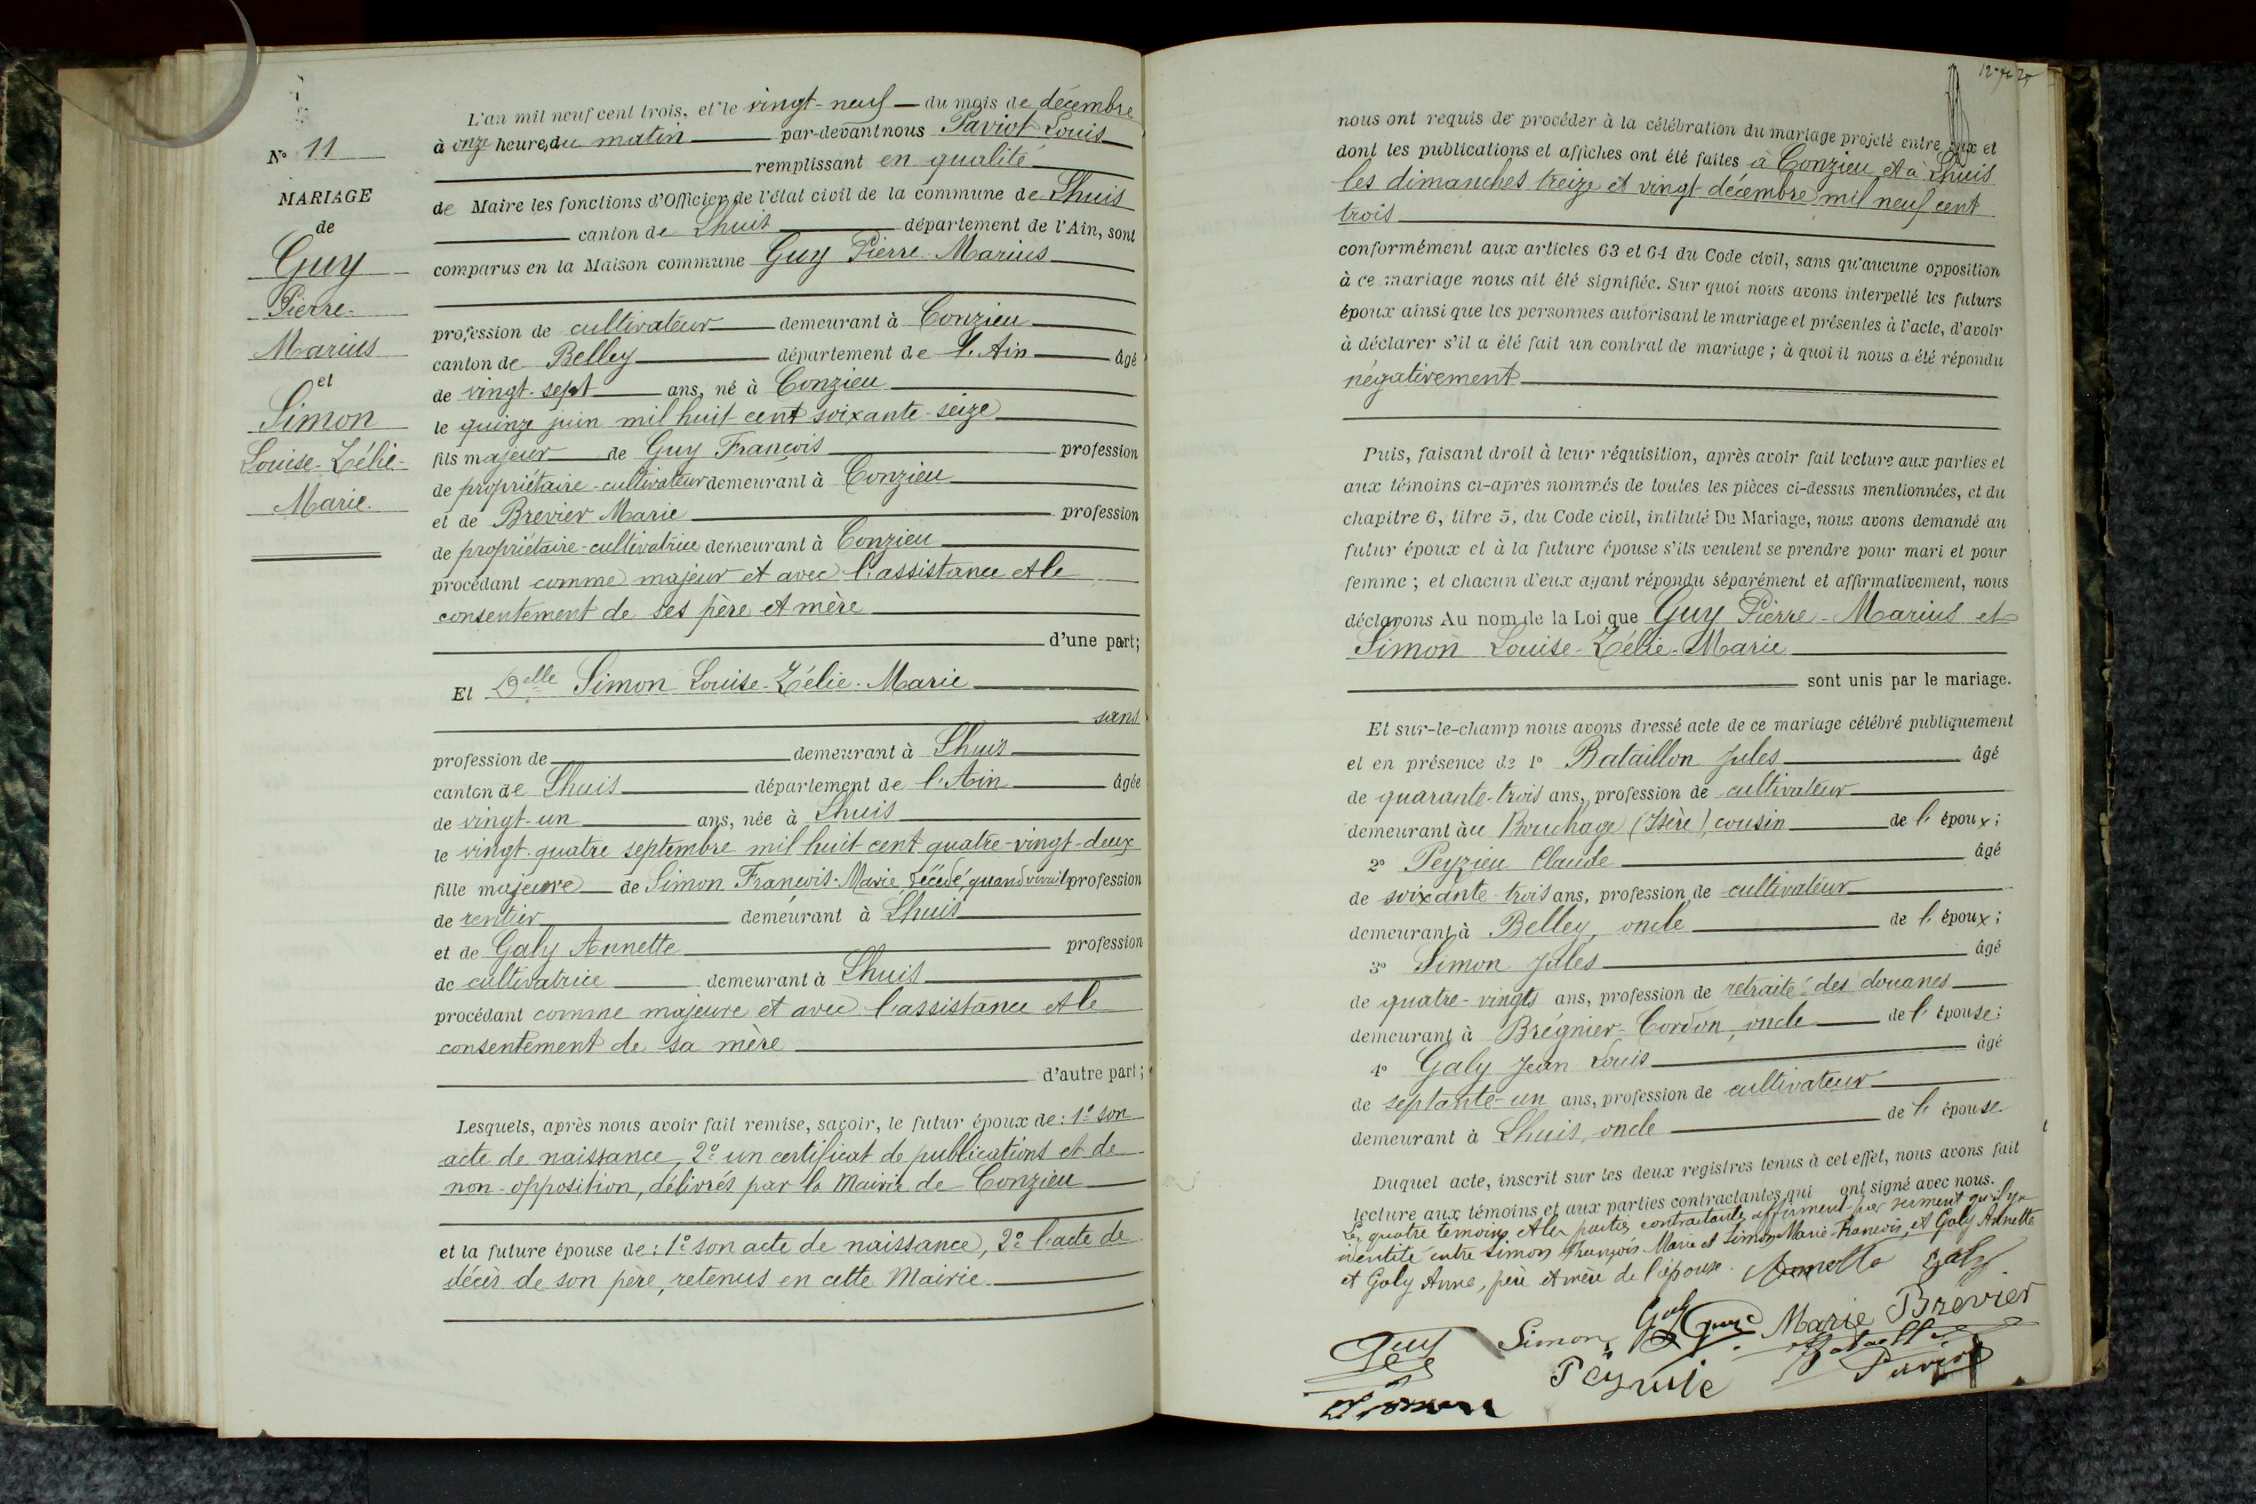 L'an mil neuf cent trois, et le vingt-neuf du mois de décembre
à onze heures du matin par-devant nous Paviot Louis
remplissant en qualité
de Maire les fonctions d'Officier de l'état civil de la commune de Lhuis
canton de Lhuis département de l'Ain, sont
comparus en la Maison commune Guy Pierre-Marius
profession de cultivateur demeurant à Conzieu
canton de Belley département de l'Ain âgé
de vingt-sept ans, né à Conzieu
le quinze juin mil huit cent soixante-seize
fils majeur de Guy François profession
de propriétaire-cultivateur demeurant à Conzieu
et de Brevier Marie profession
de propriétaire-cultivatrice demeurant à Conzieu
procédant comme majeur et avec l'assistance et le
consentement de ses père et mère
d'une part;
Et Delle Simon Louise-Zélie-Marie
sans
profession de demeurant à Lhuis
canton de Lhuis département de l'Ain âgée
de vingt-un ans, née à Lhuis
le vingt-quatre septembre mil huit cent quatre-vingt-deux
fille majeure de Simon François-Marie décédé, quand vivait profession
de rentier demeurant à Lhuis
et de Galy Annette profession
de cultivatrice demeurant à Lhuis
procédant comme majeure et avec l'assistance et le
consentement de sa mère
d'autre part;
Lesquels, après nous avoir fait remise, savoir, le futur époux de: 1º son
acte de naissance, 2º un certificat de publications et de
non-opposition, délivrés par la Mairie de Conzieu
et la future épouse de: 1º son acte de naissance, 2º l'acte de
décès de son père, retenus en cette Mairie.
Nº 11
MARIAGE
de
Guy
Pierre-
Marius
et
Simon
Louise-Zélie-
Marie.
nous ont requis de procéder à la célébration du mariage projeté entre eux et
dont les publications et affiches ont été faites à Conzieu et à Lhuis
les dimanches treize et vingt décembre mil neuf cent
trois
conformément aux articles 63 et 64 du Code civil, sans qu'aucune opposition
à ce mariage nous ait été signifiée. Sur quoi nous avons interpellé les futurs
époux ainsi que les personnes autorisant le mariage et présentes à l'acte, d'avoir
à déclarer s'il a été fait un contrat de mariage; à quoi il nous a été répondu
négativement
Puis, faisant droit à leur réquisition, après avoir fait lecture aux parties et
aux témoins ci-après nommés de toutes les pièces ci-dessus mentionnées, et du
chapitre 6, titre 5, du Code civil, intitulé Du Mariage, nous avons demandé au
futur époux et à la future épouse s'ils veulent se prendre pour mari et pour
femme; et chacun d'eux ayant répondu séparément et affirmativement, nous
déclarons Au nom de la Loi que Guy Pierre-Marius et
Simon Louise-Zélie-Marie
sont unis par le mariage.
Et sur-le-champ nous avons dressé acte de ce mariage célébré publiquement
et en présence de 1º Bataillon Jules âgé
de quarante-trois ans, profession de cultivateur
demeurant au Bouchage (Isère), cousin de l'époux;
2º Peyzieu Claude âgé
de soixante-trois ans, profession de cultivateur
demeurant à Belley, oncle de l'époux;
3º Simon Jules âgé
de quatre-vingts ans, profession de retraité des douanes
demeurant à Brégnier-Cordon, oncle de l'épouse;
4º Galy Jean Louis âgé
de septante-un ans, profession de cultivateur
demeurant à Lhuis, oncle de l'épouse
Duquel acte, inscrit sur les deux registres tenus à cet effet, nous avons fait
lecture aux témoins et aux parties contractantes qui ont signé avec nous.
Les quatre témoins et les parties contractantes affirment par serment qu'il y a
identité entre Simon François Marie et Simon Marie-François, et Galy Annette
et Galy Anne, père et mère de l'épouse. Annette Galy
Guy Simon Galy Guy Marie Brevier
Bataillon
Paviot
Simon